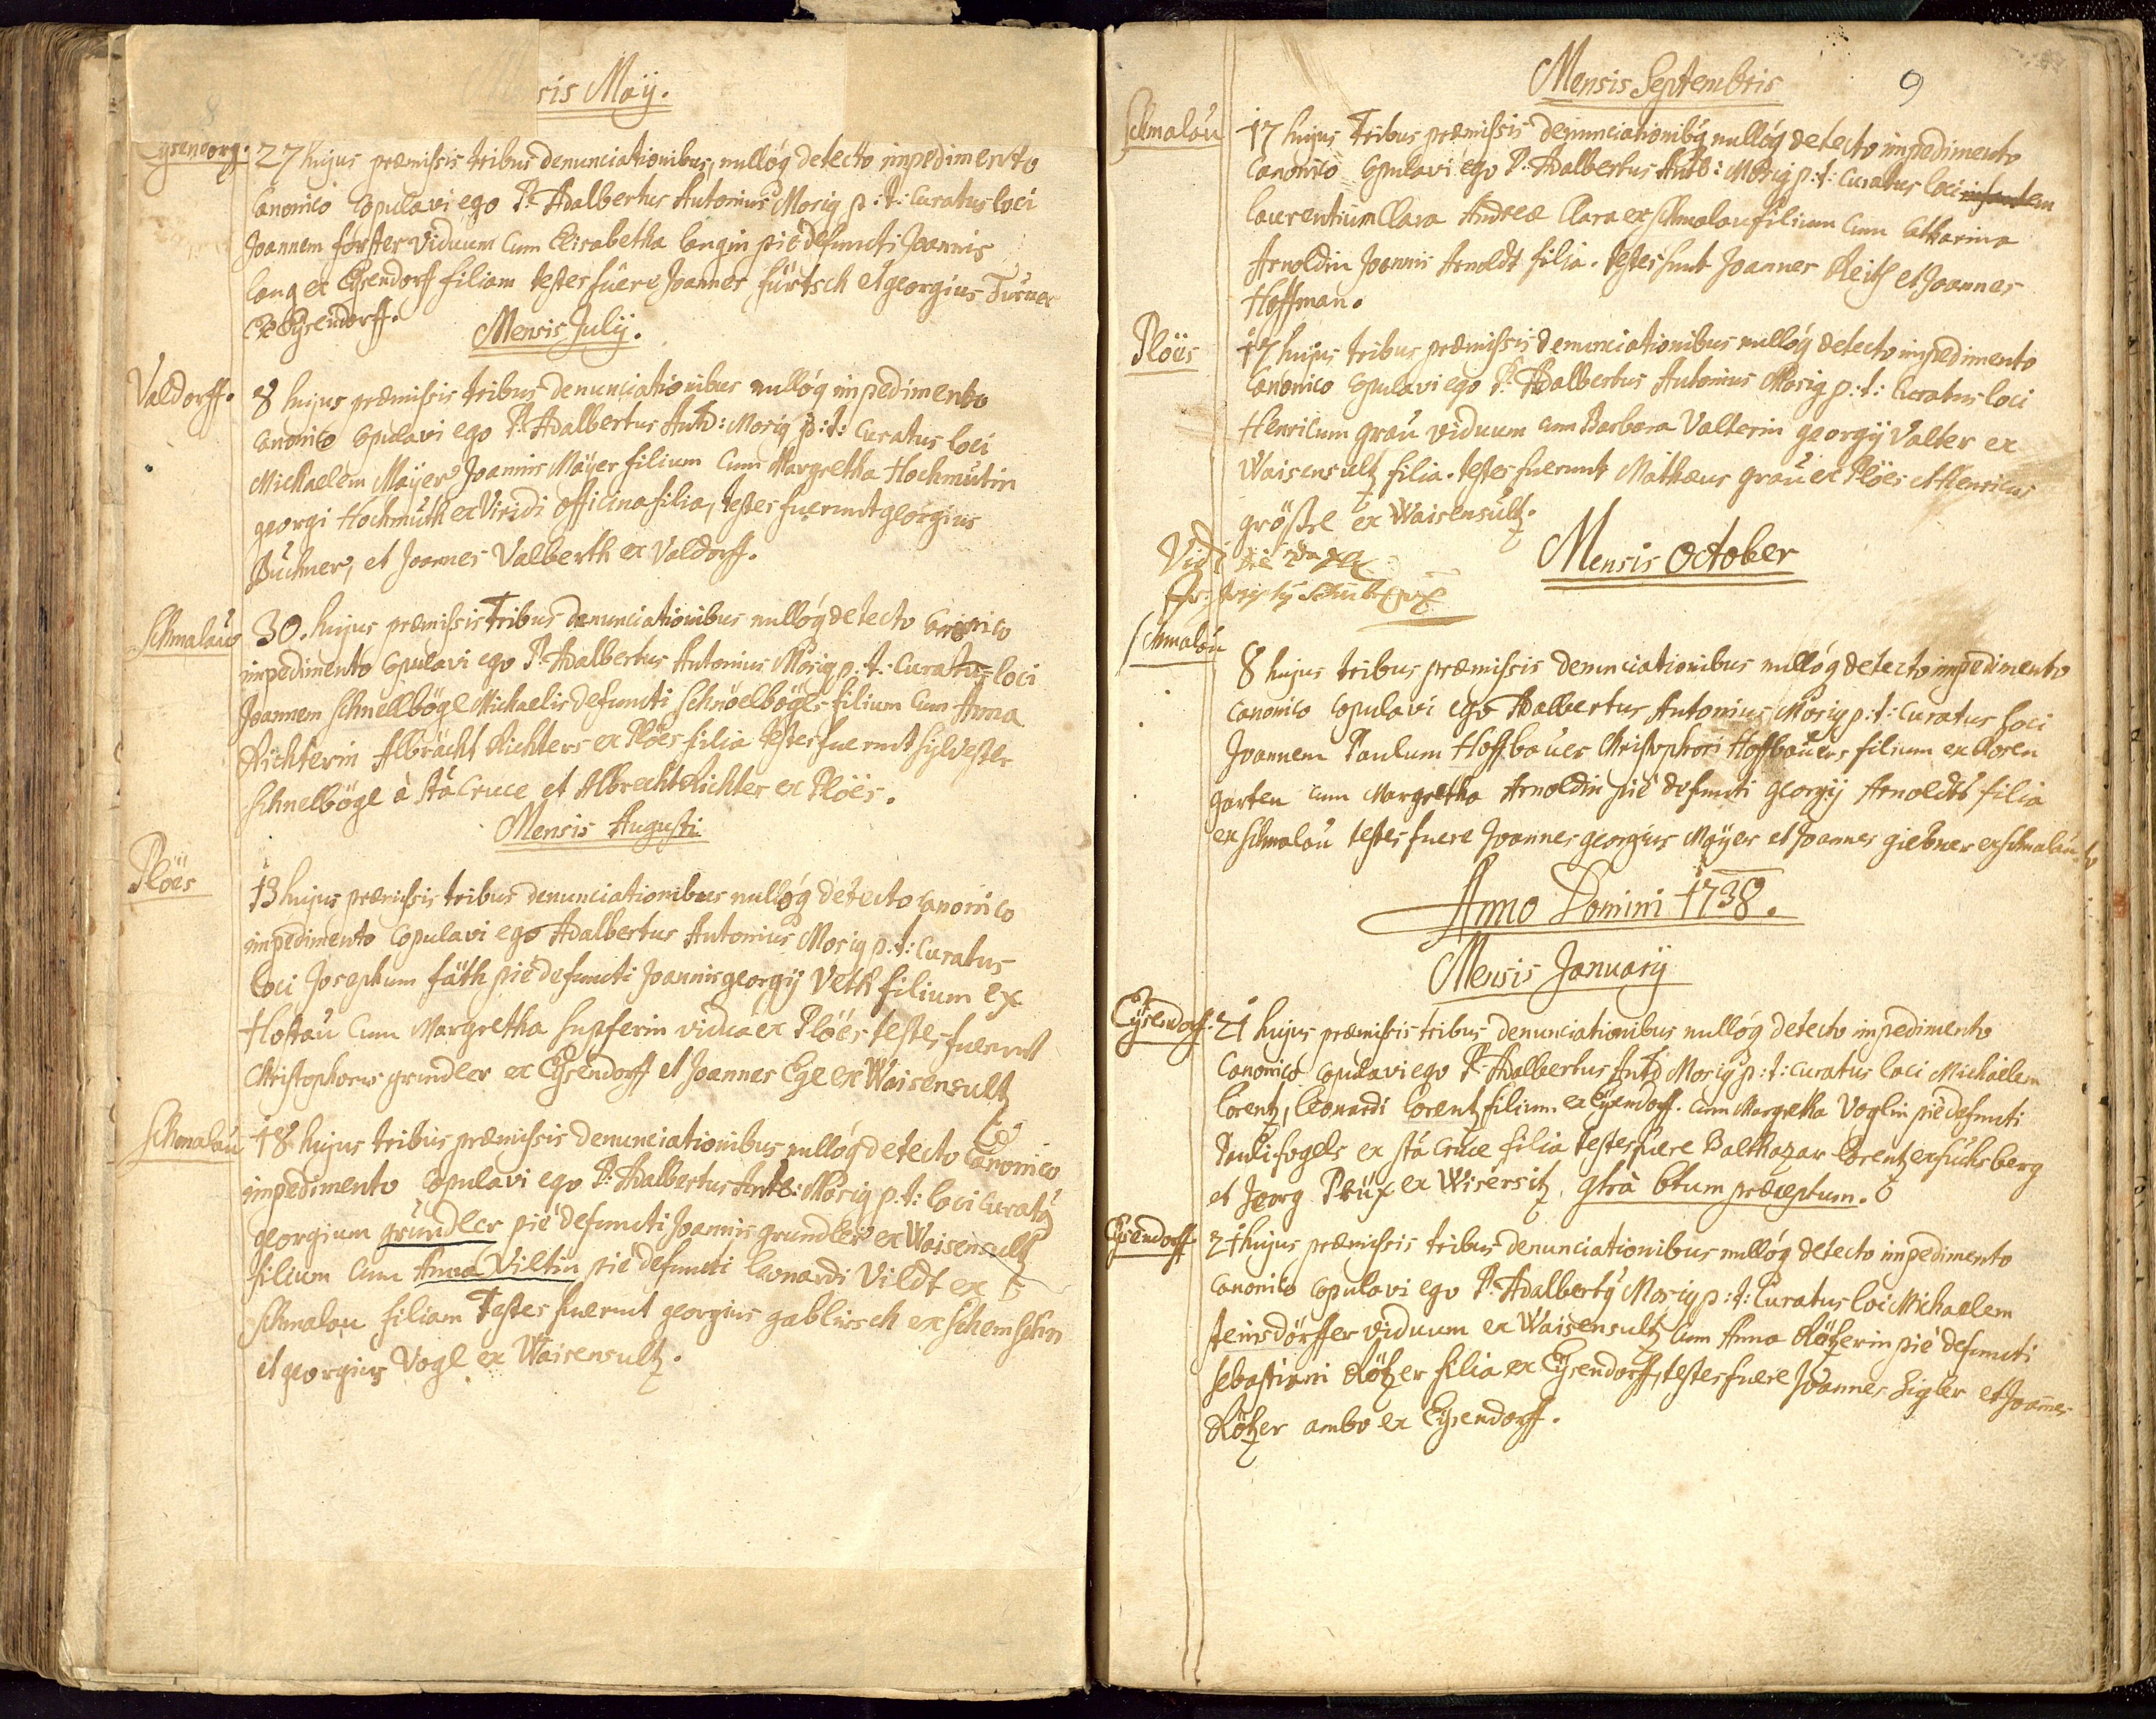 8
sis Maÿ.
Eysendorg. 27 hujus præmissis tribus denunciationibus, nullóq detecto impedimento
Canonico copulavi ego P. Adalbertus Antonius Mosig p: t: Curatus loci
Joannem forster Viduum Cum Elisabetha langin piè defuncti Joannis
lang ex Eysendorff filiam testes fuere Joannes fürtsch et georgius Turner
ex Eysendorff.
Mensis Julÿ.
Valdorff. 8 hujus præmissis tribus denunciationibus nullóq impedimento
canonico copulavi ego P. Adalbertus Antō: Mosig p: t: Curatus loci
Michaelem Mayer Joannis Mayer filium Cum Margretha Hochmutin
georgi Hochmuth ex Viridi officina filia, testes fuerunt georgius
Buchner, et Joannes Valberth ex Valdorff.
Schmalau 30. hujus præmissis Tribus denunciationibus nullóq detecto Canonico
impedimento copulavi ego P. Adalbertus Antonius Mosig p: t: Curatus loci
Joannem Schnellbögl Michaelis defuncti Schnöelbögls filium Cum Anna
Richterin Albrächt Richters ex Plöes filia testes fuerunt Sylvester
Schnelbögl à stâ Cruce et Albrecht Richter ex Plöes.
Mensis Augusti
Plöes 13 hujus præmissis tribus denunciationibus nullóq detecto canonico
impedimento copulavi ego Adalbertus Antonius Mosig p: t: Curatus
loci Josephum fäth piè defuncti Joannis georgÿ Veth filium ex
Hostau Cum Margretha hupferin vidua ex Plöes testes fuerunt
Christophorus grindler ex Eysendorff et Joannes Ege ex Waisensultz
Schmalau 18 hujus tribus præmissis denunciationibus nullóq detecto Canonico
impedimento copulavi ego P. Adalbertus Antō: Mosig p: t: loci Curatq
georgium gründler piè defuncti Joannis grundler ex Waisensultz
filium Cum Anna Viltin piè defuncti leonardi Vildt ex
Schmalau filiam Testes fuerunt georgius gablirsch ex
et georgius Vogl ex Waisensultz.
Mensis Septembris 9
Schmalau 17 hujus Tribus præmissis denunciationibq nullóq detecto impedimento
Canonico copulavi ego P. Adalbertus Antō: Mosig p: t: Curatus loci infantem
laurentium Clara Andreæ Clara ex Schmalau filium Cum Catharina
Arnoldin Joannis Arnoldt filia. testes sunt Joannes Reitz et Joannes
Hoffman.
Plöes 17 hujus tribus præmissis denunciationibus nullóq detecto impedimento
Canonico copulavi ego P. Adalbertus Antonius Mosig p: t: Curatus loci
Henricum grau viduum cum Barbara Valterin georgÿ Valter ex
Waisensultz filia. testes fuerunt Mathæus grau ex Plöes et Henricus
größle ex Waisensultz.
Vidi
Mensis October
Schmalau 8 hujus tribus præmissis denunciationibus nullóq detecto impedimento
canonico copulavi ego Adalbertus Antonius Mosig p: t: Curatus loci
Joannem Paulum Hoffbauer Christophori Hoffbauers filium ex Rosen
garten cum Margretha Arnoldin piè defuncti georgÿ Arnoldts filia
ex Schmalau testes fuere Joannes georgius Mayer et Joannes giebner ex Schmalau
Anno Domini 1738.
Mensis Januarÿ
Eysendorf. 21 hujus præmissis tribus denunciationibus nullóq detecto impedimento
Canonico copulavi ego P. Adalbertus Antō Mosig p: t: curatus loci Michaelem
lorentz, leonardi lorentz filium ex Eysendorff. cum Margretha Voglin piè defuncti
Pauli fogels ex stâ cruce filia testes fuere Balthazar lorentz ex fuchsberg
et Jeorg Prüx ex Wisersitz, gtrà btum præceptum.
Eysendorff. 21 hujus præmissis tribus denunciationibus nullóq detecto impedimento
canonico copulavi ego P. Adalbertq Mosig p: t: Curatus loci Michaelem
feinsdörffer viduum ex Waisensultz Cum Anna Rötzerin piè defuncti
Sebastiani Rötzer filia ex Eysendorff, testes fuere Joannes Zigler et Joannes
Rötzer ambo ex Eysendorff.